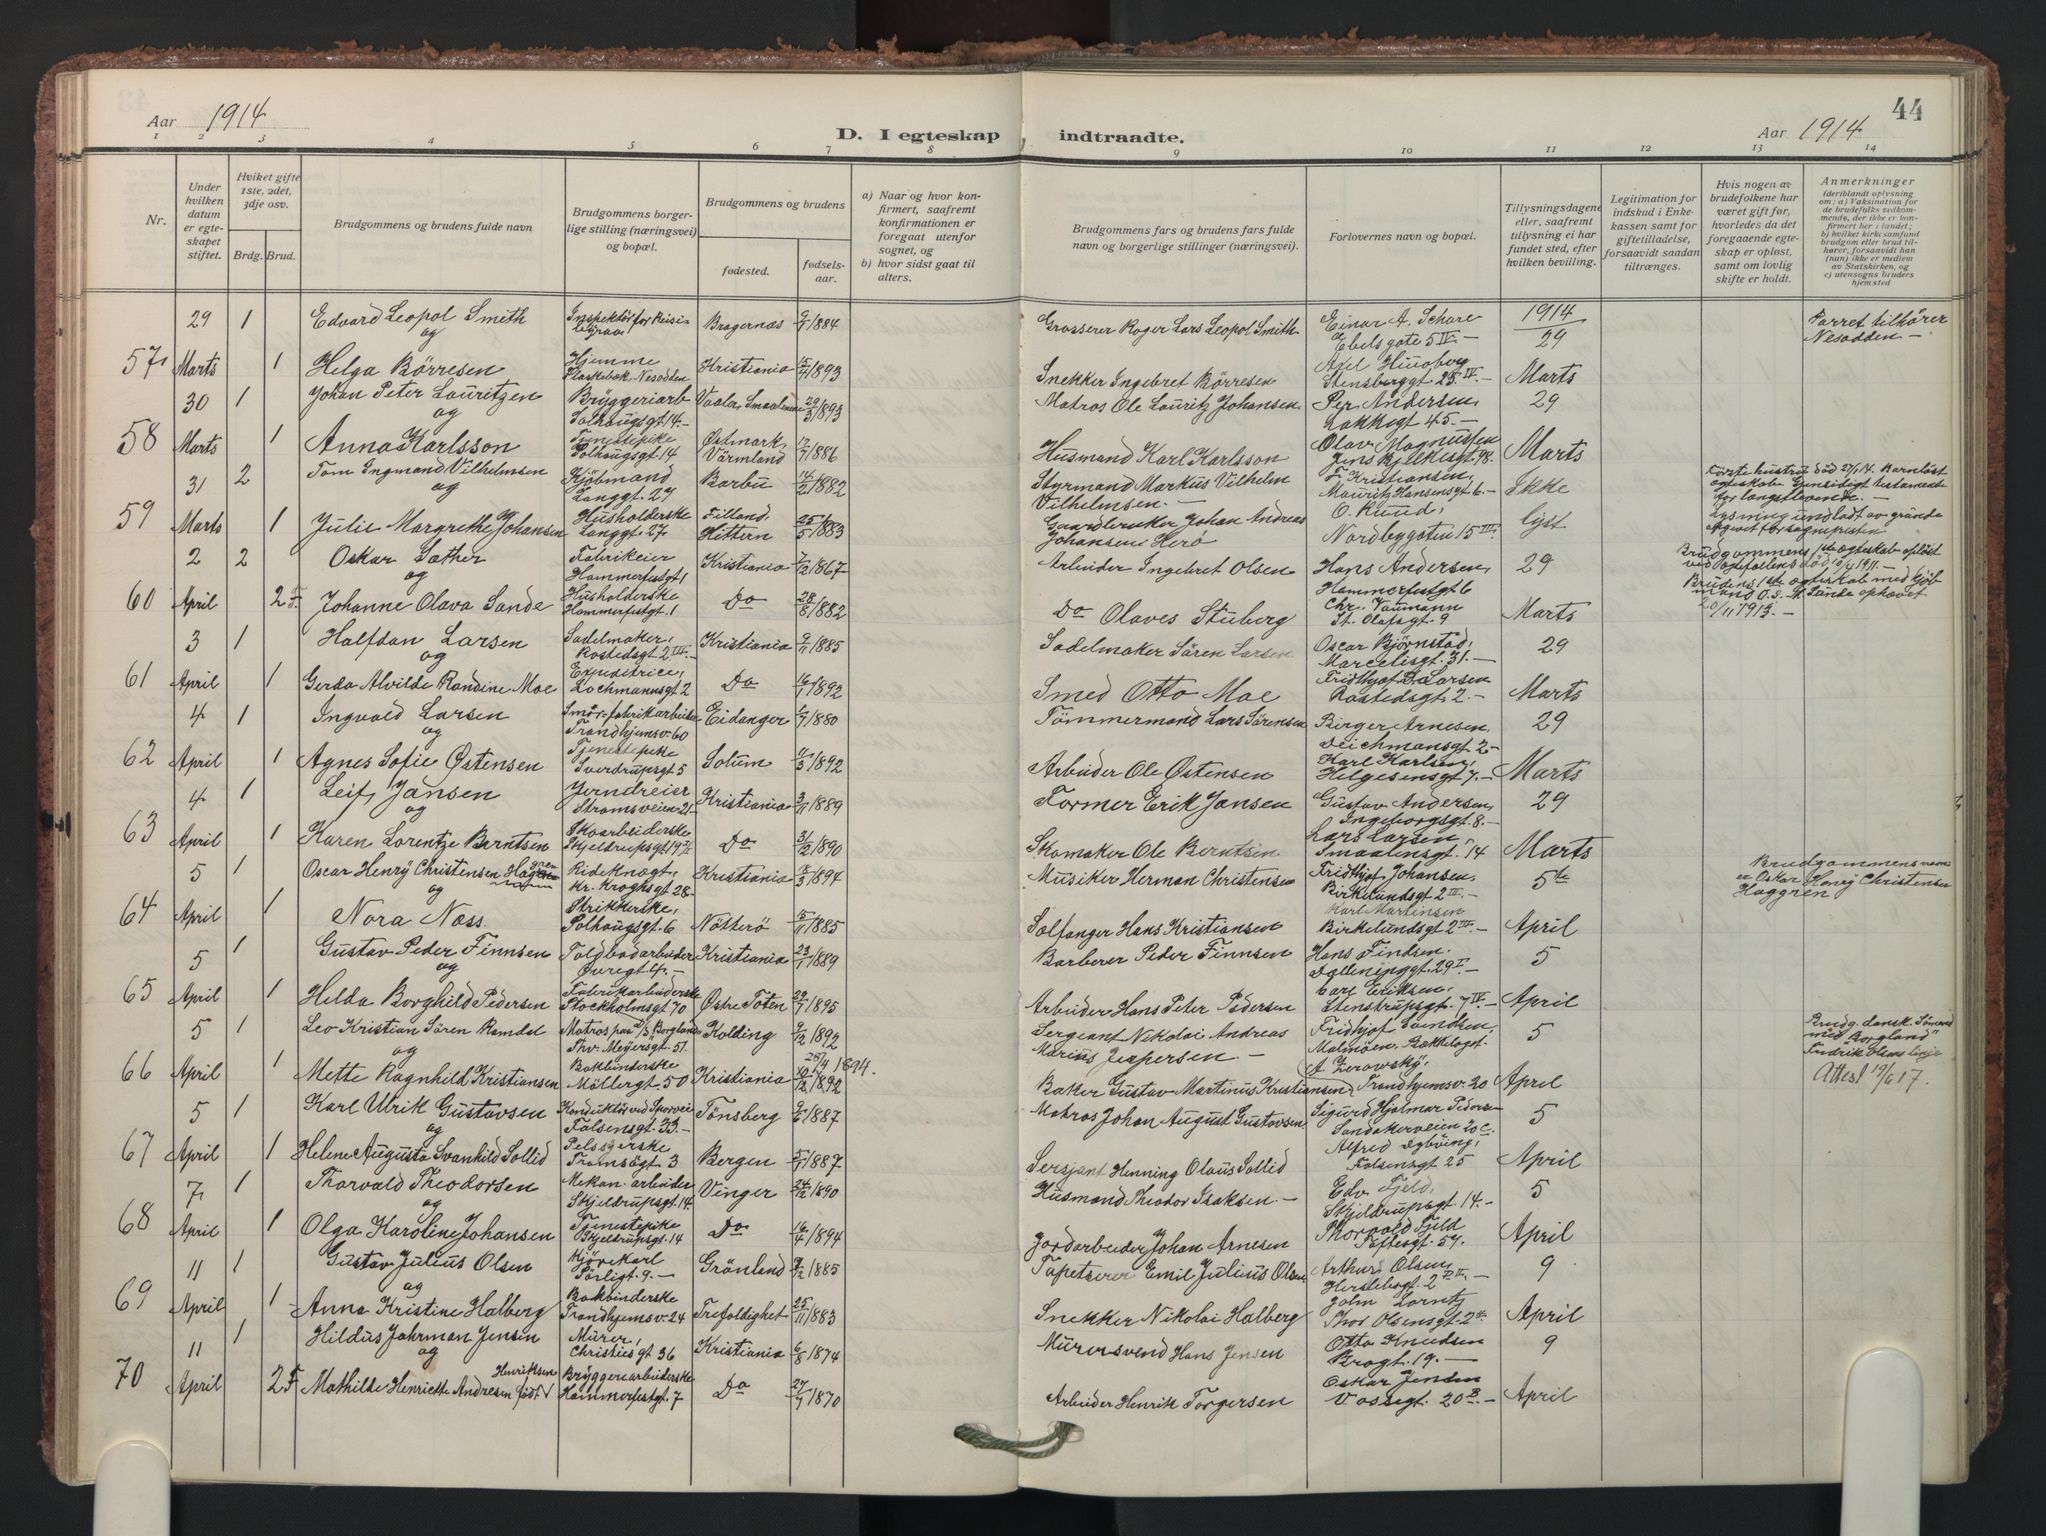 44
Aar 1914
D. I egteskap indtraadte.
Aar 1914
1 2 3 4 5 6 7 8 9 10 11 12 13 14
Nr.
Under hvilken datum er egteskapet stiftet.
Hviket gifte 1ste, 2det, 3dje osv.
Brdg. Brud.
Brudgommens og brudens fulde navn
Brudgommens borgerlige stilling (næringsvei) og bopæl.
Brudgommens og brudens
fødested.
fødselsaar.
a) Naar og hvor konfirmert, saafremt konfirmationen er foregaat utenfor sognet, og
b) hvor sidst gaat til alters.
Brudgommens fars og brudens fars fulde navn og borgerlige stillinger (næringsvei).
Forlovernes navn og bopæl.
Tillysningsdagene eller, saafremt tillysning ei har fundet sted, efter hvilken bevilling.
Legitimation for indskud i Enkekassen samt for giftetilladelse, forsaavidt saadan tiltrænges.
Hvis nogen av brudefolkene har været gift før, hvorledes da det foregaaende egteskap er opløst, samt om lovlig skifte er holdt.
Anmerkninger
(deriblandt oplysning om: a) Vaksination for de brudefolks vedkommende, der ikke er konfirmert her i landet; b) hvilket kirkesamfund brudgom eller brud tilhører, forsaavidt han (hun) ikke er medlem av Statskirken, og c) utensogns bruders hjemsted
57 29 Marts 1 Edvard Leopol Smith Bragernæs 9/7 1884 Grosserer Roger Lars Leopol Smith Einar A. Schare Ebelsgate 5 IV. 1914 29 Parret tilhører Nesodden
og
1 Helga Börresen Hjemme Flaskebæk. Nesodden Kristiania 15/7 1893 Snekker Ingebret Börresen Stensberggt 25 IV. Marts
58 30 Marts 1 Johan Peter Lauritzen Bryggeriarb Solhaugsgt 14. Vaaler, Smaalenene 29/3 1893 Matros Ole Lauritz Johansen Per Andersen, Lakkegt 45. 29
og
1 Anna Karlsson Tjenestepike Solhaugsgt 14 Østmark, Värmland 17/7 1886 Husmand Karl Karlsson Olav Magnussen Jens Bjelkesgt. 98. Marts
59 31 Marts 2 Tom Ingmand Vilhelmsen Kjöbmand Langgt. 27 Barbu 14/2 1882 Styrmand Markus Vilhelm Vilhelmsen. F. Kristiansen, Mauritz Hansensgt 6. Ikke Første hustru død 27/1 14. Barnløst egteskab. Gjensidigt testamente for længstlevende.
og
1 Julie Margrethe Johansen Husholderske Langgt. 27. Filland, Hittern 25/5 1883 Gaardbruker Johan Andreas Johansen Herö O. Ruud, Nordbygaten 15 III. lyst Lysning undladt av grunde opgivet for sognepresten
60 2 April 2 Oskar Sæther Fabrikeier Hammerfestgt 1 Kristiania 7/12 1867 Arbeider Ingebret Olsen Hans Andersen, Hammerfestgt 6 29 Brudgommens 1ste egteskab opløst ved egtefællens død 10/4 1911.
og
2 F. Johanne Olava Sande Husholderske Hammerfestgt. 1 Do 28/8 1882 Do Olaves Stuberg Chr. Jaumann St. Olafsgt. 9 Marts Brudens 1ste egteskab med kjøbmand O. S. A. Sande ophævet 20/11 1913.
61 3 April 1 Halfdan Larsen Sadelmaker, Rostedsgt. 2 III. Kristiania 9/11 1885 Sadelmaker Sören Larsen Oscar Bjørnstad, Marcelisgt. 31. 29
og
1 Gerda Alvilde Randine Moe Expeditrice, Lochmannsgt 2 Do 16/1 1892 Smed Otto Moe Fridthjof D. Larsen Rostedsgt. 2. Marts
62 4 April 1 Ingvald Larsen Smör-fabrikarbeider Trondhjemsv. 60 Eidanger 1/7 1880 Tömmermand Lars Sörensen Birger Arnesen, Deichmansgt. 2 29
og
1 Agnes Sofie Østensen Tjenestepike Sverdrupsgt 5 Solum 7/3 1892 Arbeider Ole Østensen Karl Karlsen, Helgesensgt 7. Marts
63 4 April 1 Leif Jansen Jerndreier Strømsveien 21 Kristiania 3/11 1889 Former Erik Jansen Gustav Andersen, Ingeborgsgt. 8. 29
og
1 Karen Lorentze Berntsen Skoarbeiderske Skjeldrupsgt 19 Do 31/12 1890 Skomaker Ole Berntsen Lars Larsen, Smaalensgt. 14 Marts
64 5 April Oscar Henry Christensen Rideknægt, Kr. Kroghsgt 28 Kristiania 18/3 1894 Musiker Herman Christensen Fridthjof Johansen, Birkelundsgt 2 III. 5te Brudgommens navn er Oskar Henry Christensen Haggren
og
1 Nora Næss. Strikkerske, Solhaugsgt. 6 Nötterö 15/11 1885 Sælfanger Hans Kristiansen Karl Martinsen Birkelundsgt 2 III. April
65 5 April 1 Gustav Peder Finnsen Toldbodarbeider Øvregt. 4. Kristiania 23/1 1889 Barberer Peder Finnsen Hans Findsen, Dælenenggt. 29 I. 5
og
1 Helda Borghild Pedersen Fabrikarbeiderske Stockholmsgt 70 Østre Toten 29/7 1895 Arbeider Hans Peter Pedersen Carl Eriksen, Stenstrupsgt. 7 IV. April
66 5 April 1 Leo Kristian Sören Ramdal Matros paa D/S Borgland Thv. Meyersgt. 51. Kolding 9/12 1892 Sergeant Nikolai Andreas Marius Jespersen. Fridhjof Svendsen, Malmøen. 5 Brudg. dansk. Sömand med "Borgland" Fredrik Olsens linje
og 26/4 1894.
1 Mette Ragnhild Kristiansen Bokbinderske Möllergt. 50 Kristiania 10/12 1892 Baker Gustav Martinus Kristiansen A. Zerowsky, Trondhjemsv. 20 April Attest 19/6 17.
67 5 April 1 Karl Ulrik Gustavsen Konduktör ved Sporvei Falsensgt. 33. Tönsberg 9/6 1887 Matros Johan August Gustavsen Sigurd Hjalmar Pedersen Sandakerveien 20 c. 5
og
1 Helene Augusta Svanhild Sollid Pelssyerske Tromsögt. 3 Bergen 5/1 1887 Sersjant Henning Olaus Sollid Alfred Falsensgt 25 April
68 7 April 1 Thorvald Theodorsen Mekan. arbeider Skjeldrupsgt. 14. Vinger 24/12 1890 Husmand Theodor Isaksen. Edv. Fjeld, Skjeldrupsgt. 14. 5
og
1 Olga Karoline Johansen Tjenestepike Skjeldrupsgt. 14 Do 16/4 1894 Jordarbeider Johan Arnesen Thorvald Fjeld Toftesgt. 57. April
69 11 April 1 Gustav Julius Olsen Kjörekarl Sörligt. 9. Grönland 9/12 1885 Tapetserer Emil Julius Olsen Arthur Olsen Herslebsgt. 2 9
og
1 Anna Kristine Halberg Bokbinderske Trondhjemsv. 24 Trefoldighet 25/11 1883 Snekker Nikolai Halberg John Lorntz Thor Olsensgt. 2 April
70 11 April 1 Hildus Johrman Jensen Murer, Christiesgt 36 Kristiania 6/8 1874 Murersvend Hans Jensen Otto Knudsen Brogt. 19. 9
og
2 F Mathilde Henriette Andresen født Henriksen Bryggeriarbeiderske Hammerfestgt. 7 Do 27/7 1870 Arbeider Henrik Torgersen Oskar Jensen Vossegt. 20 B. April